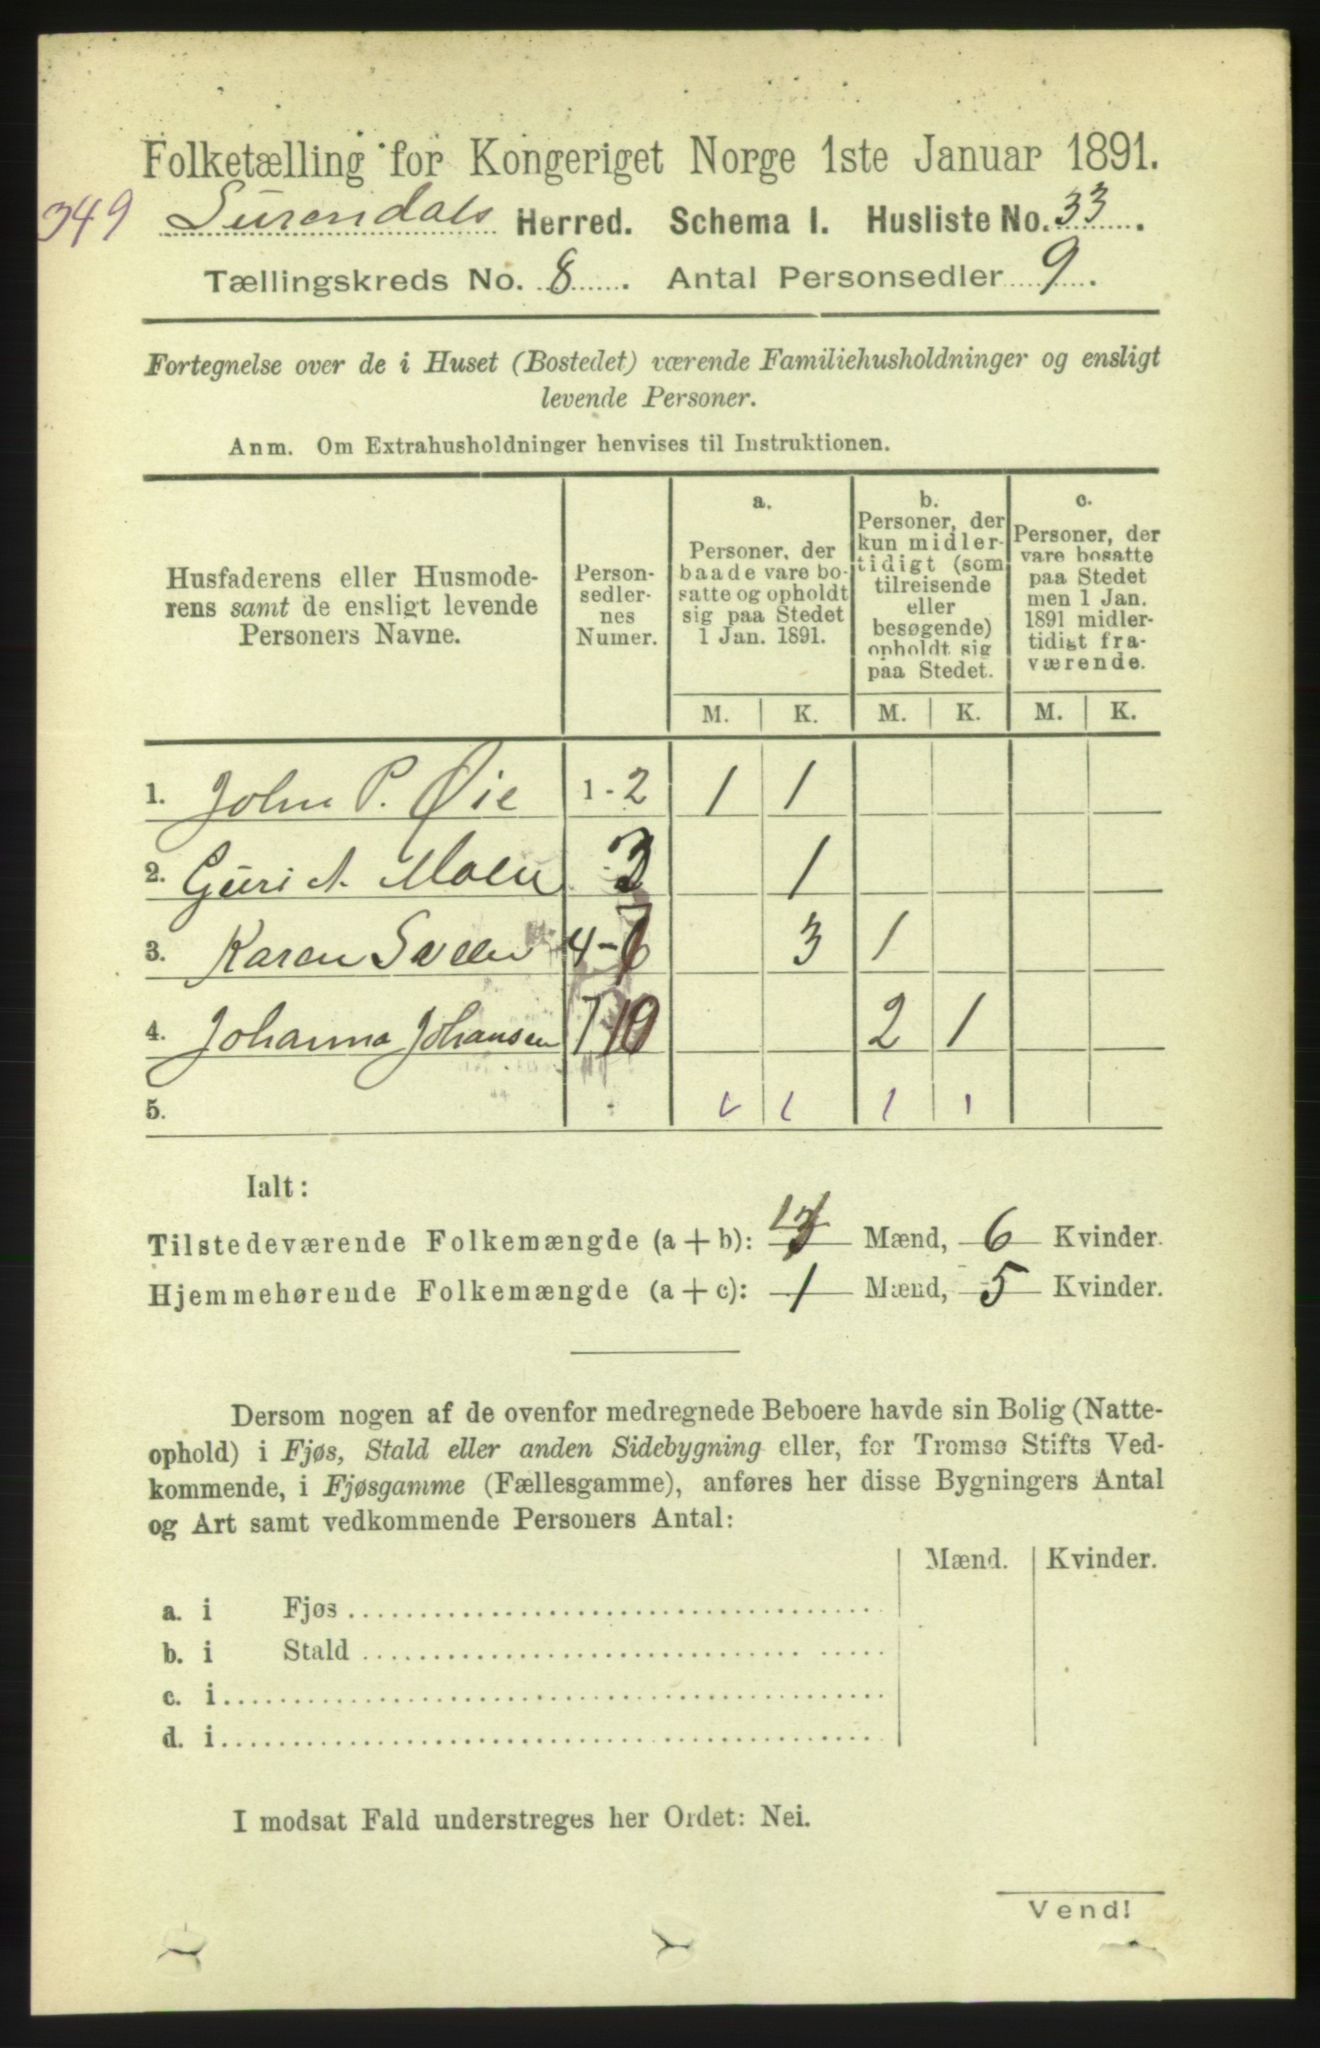 Folketælling for Kongeriget Norge 1ste Januar 1891.
349 Surendals Herred. Schema I. Husliste No. 33.
Tællingskreds No. 8. Antal Personsedler 9.
Fortegnelse over de i Huset (Bostedet) værende Familiehusholdninger og ensligt
levende Personer.
Anm. Om Extrahusholdninger henvises til Instruktionen.
Husfaderens eller Husmode-
rens samt de ensligt levende
Personers Navne.
Person-
sedler-
nes
Numer.
a.
Personer, der
baade vare bo-
satte og opholdt
sig paa Stedet
1 Jan. 1891.
b.
Personer, der
kun midler-
tidigt (som
tilreisende
eller
besøgende)
opholdt sig
paa Stedet.
c.
Personer, der
vare bosatte
paa Stedet
men 1 Jan.
1891 midler-
tidigt fra-
værende.
M. K. M. K. M. K.
1. John P. Øie 1-2 1 1
2. Guri A. Moen 3 1
3. Karen Sveen 4- 3 1
4. Johanna Johansen 10 2 1
5.
Ialt:
Tilstedeværende Folkemængde (a + b): Mænd, 6 Kvinder.
Hjemmehørende Folkemængde (a + c): 1 Mænd, 5 Kvinder.
Dersom nogen af de ovenfor medregnede Beboere havde sin Bolig (Natte-
ophold) i Fjøs, Stald eller anden Sidebygning eller, for Tromsø Stifts Ved-
kommende, i Fjøsgamme (Fællesgamme), anføres her disse Bygningers Antal
og Art samt vedkommende Personers Antal:
Mænd. Kvinder.
a. i Fjøs
b. i Stald
c. i
d. i
I modsat Fald understreges her Ordet: Nei.
Vend!